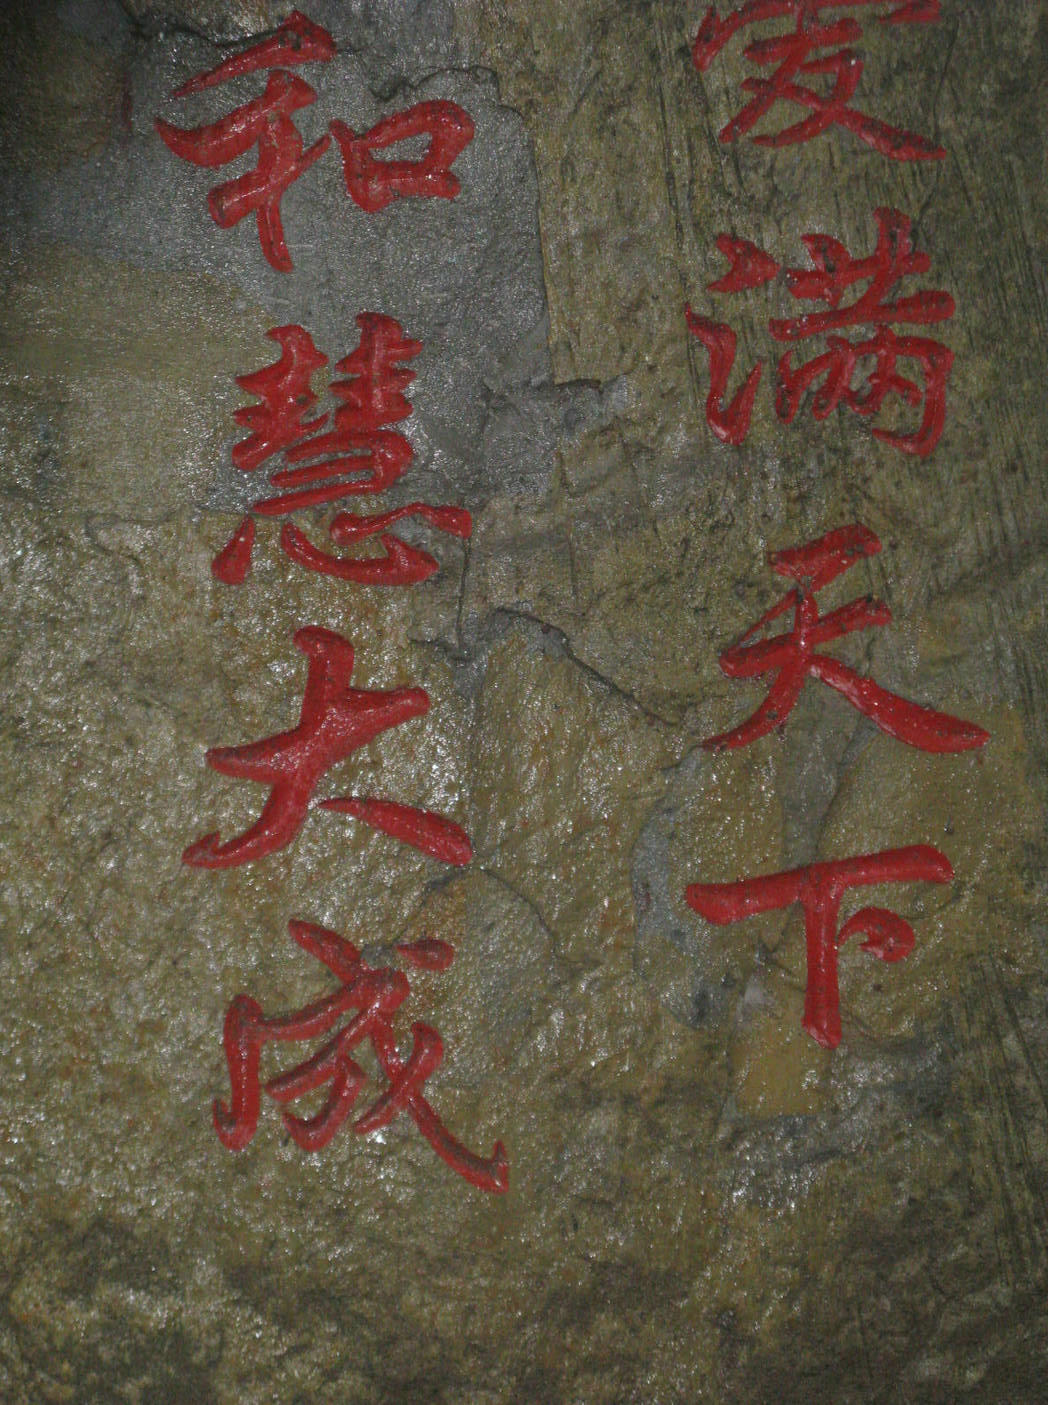 爱满天下
和慧大成